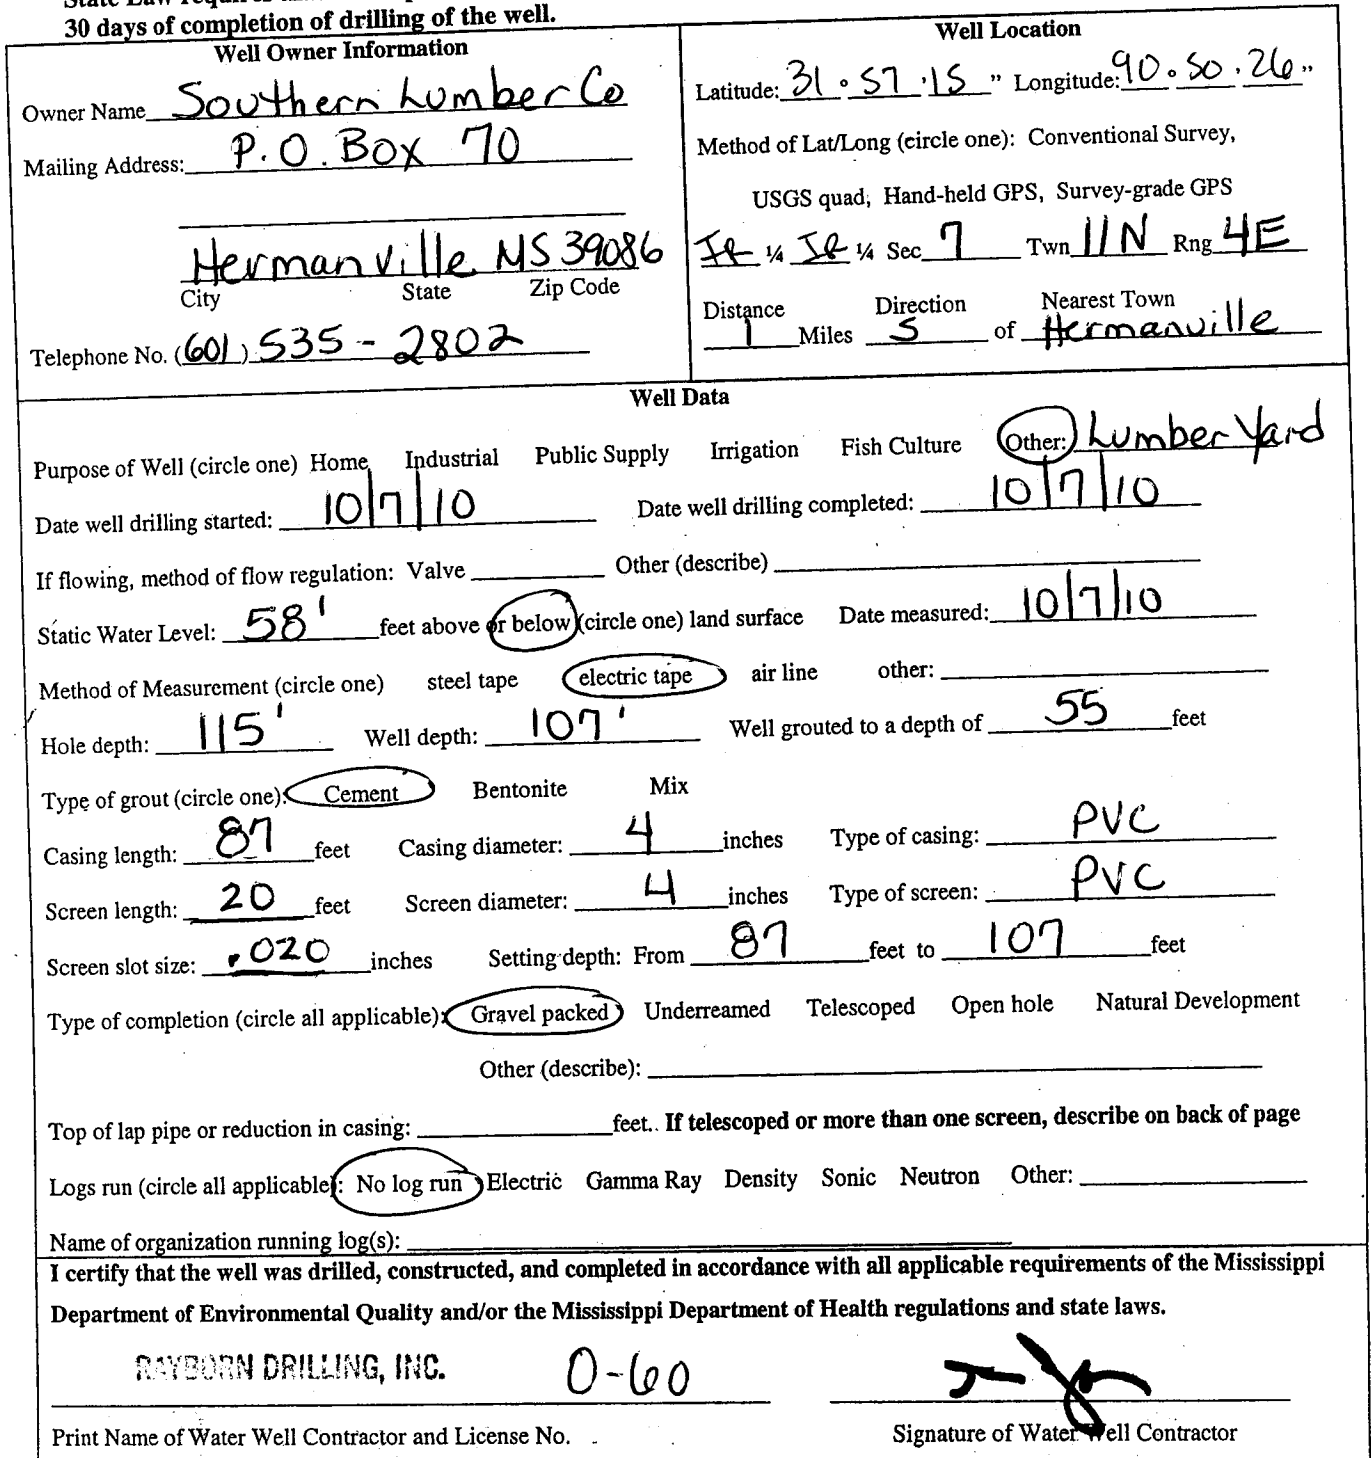 30 days of completion of drilling of the well.
Well Owner Information
Owner Name Southern Lumber Co
Mailing Address: P.O. Box 70
Hermanville MS 39086
City State Zip Code
Telephone No. (601) 535-2802
Well Location
Latitude: 31° 57' 15" Longitude: 90° 50' 26"
Method of Lat/Long (circle one): Conventional Survey,
USGS quad, Hand-held GPS, Survey-grade GPS
¼ ¼ Sec 7 Twn 11N Rng 4E
Distance Direction Nearest Town
1 Miles S of Hermanville
Well Data
Purpose of Well (circle one) Home Industrial Public Supply Irrigation Fish Culture Other: Lumber Yard
Date well drilling started: 10/7/10 Date well drilling completed: 10/7/10
If flowing, method of flow regulation: Valve Other (describe)
Static Water Level: 58' feet above or below (circle one) land surface Date measured: 10/7/10
Method of Measurement (circle one) steel tape electric tape air line other:
Hole depth: 115' Well depth: 107' Well grouted to a depth of 55 feet
Type of grout (circle one): Cement Bentonite Mix
Casing length: 87 feet Casing diameter: 4 inches Type of casing: PVC
Screen length: 20 feet Screen diameter: 4 inches Type of screen: PVC
Screen slot size: .020 inches Setting depth: From 87 feet to 107 feet
Type of completion (circle all applicable): Gravel packed Underreamed Telescoped Open hole Natural Development
Other (describe):
Top of lap pipe or reduction in casing: feet. If telescoped or more than one screen, describe on back of page
Logs run (circle all applicable): No log run Electric Gamma Ray Density Sonic Neutron Other:
Name of organization running log(s):
I certify that the well was drilled, constructed, and completed in accordance with all applicable requirements of the Mississippi
Department of Environmental Quality and/or the Mississippi Department of Health regulations and state laws.
RAYBORN DRILLING, INC. 0-60
Print Name of Water Well Contractor and License No.
Signature of Water Well Contractor